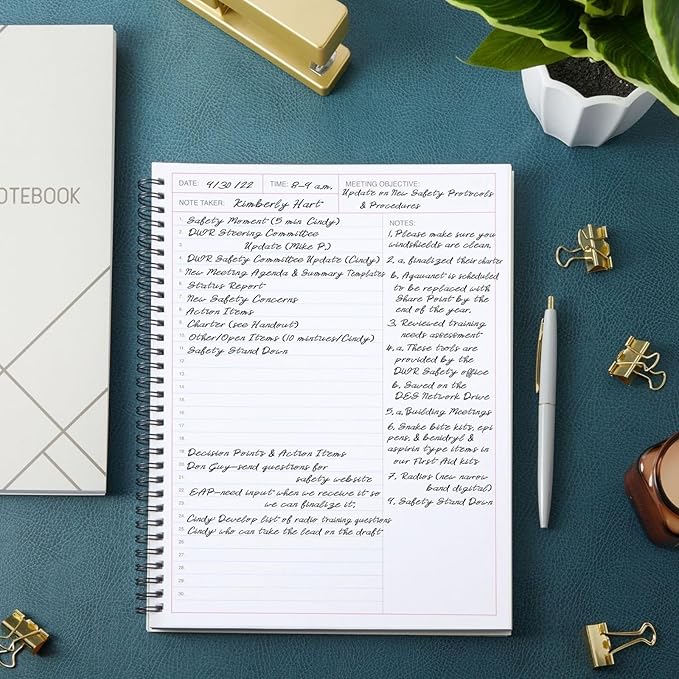 NOTEBOOK
DATE: 9/30/22 TIME: 8-9 a.m. MEETING OBJECTIVE:
Update on New Safety Protocols
& Procedures
NOTE TAKER: Kimberly Hart
1 Safety Moment (5 min Cindy)
2 DWR Steering Committee
3 Update (Mike P.)
4 DWR Safety Committee Update (Cindy)
5 New Meeting Agenda & Summary Templates
6 Status Report
7 New Safety Concerns
8 Action Items
9 Charter (see Handout)
10 Other/Open Items (10 mintues/Cindy)
11 Safety Stand Down
12
13
14
15
16
17
18
19 Decision Points & Action Items
20 Don Guy-send questions for
21 safety website
22 EAP-need input when we receive it so
23 we can finalize it;
24 Cindy Develop list of radio training questions
25 Cindy who can take the lead on the draft
26
27
28
29
30
NOTES:
1. Please make sure you
windshields are clean.
2. a. finalized their charter
b. Aquanet is scheduled
to be replaced with
Share Point by the
end of the year.
3. Reviewed training
needs assessment
4. a. These tools are
provided by the
DWR Safety office
b. Saved on the
DES Network Drive
5. a. Building Meetings
6. Snake bite kits, epi
pens, & benidryl &
aspirin type items in
our First Aid kits
7. Radios (new narrow
band digital)
9. Safety Stand Down